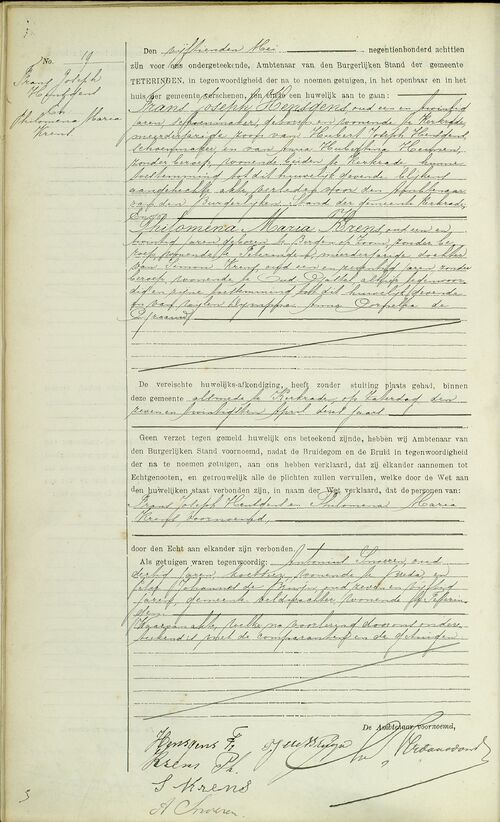 No. 19
Frans Joseph
Philomena Maria
Krens
Den vijftienden Mei negentienhonderd achttien
zijn voor ons ondergeteekende, Ambtenaar van den Burgerlijken Stand der gemeente
TETERINGEN, in tegenwoordigheid der na te noemen getuigen, in het openbaar en in het
huis der gemeente verschenen, ten einde een huwelijk aan te gaan:
Frans Joseph Hensgens, oud een en twintig
jaren, geboren en wonende te Kerkrade,
meerderjarige zoon van Hubert Joseph Hensgens,
schoenmaker, en van Anna Hubertina
zonder beroep, wonende beiden te Kerkrade
toestemming tot dit huwelijk gevende blijkens
aangehechte akte verleden voor den Ambtenaar
van den Burgerlijken Stand der gemeente Kerkrade
Philomena Maria Krens, oud een en
twintig jaren, geboren te Bergen op Zoom, zonder be-
roep, wonende te Teteringen, meerderjarige dochter
van Simon Krens, oud een en zeventig jaren, zonder
beroep, wonende te
toestemming tot dit huwelijk gevende
en van wijlen Anna de
De vereischte huwelijks-afkondiging, heeft zonder stuiting plaats gehad, binnen
deze gemeente alsmede te Kerkrade, op Zaterdag den
zeven en twintigsten April dezes jaars
Geen verzet tegen gemeld huwelijk ons beteekend zijnde, hebben wij Ambtenaar van
den Burgerlijken Stand voornoemd, nadat de Bruidegom en de Bruid in tegenwoordigheid
der na te noemen getuigen, aan ons hebben verklaard, dat zij elkander aannemen tot
Echtgenooten, en getrouwelijk alle de plichten zullen vervullen, welke door de Wet aan
den huwelijken staat verbonden zijn, in naam der Wet verklaard, dat de personen van:
Frans Joseph Hensgens en Philomena Maria
Krens voornoemd,
door den Echt aan elkander zijn verbonden.
Als getuigen waren tegenwoordig: Antonius Snoeren, oud
dertig jaren, wonende te Breda, en
Johannes de Bruijn, oud zeven en vijftig
jaren, gemeente veldwachter, wonende te Teterin-
gen.
Waarvan akte, welke na voorlezing door ons onder-
teekend is met de comparanten en de getuigen.
De Ambtenaar voornoemd,
Hensgens F.
Krens Ph.
S Krens
A Snoeren.